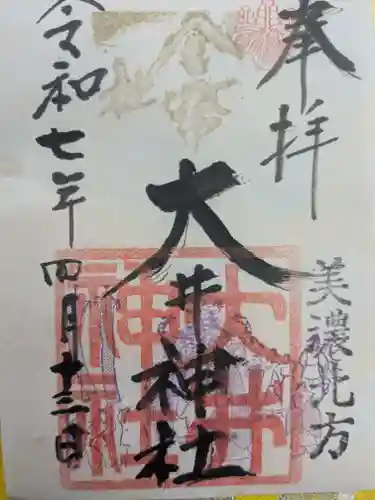 奉拝
美濃北方
大井神社
令和七年
四月十三日
大井神社